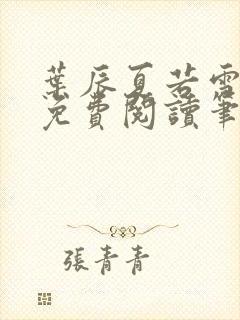 葉辰夏若雪
免費閱讀筆
張青青